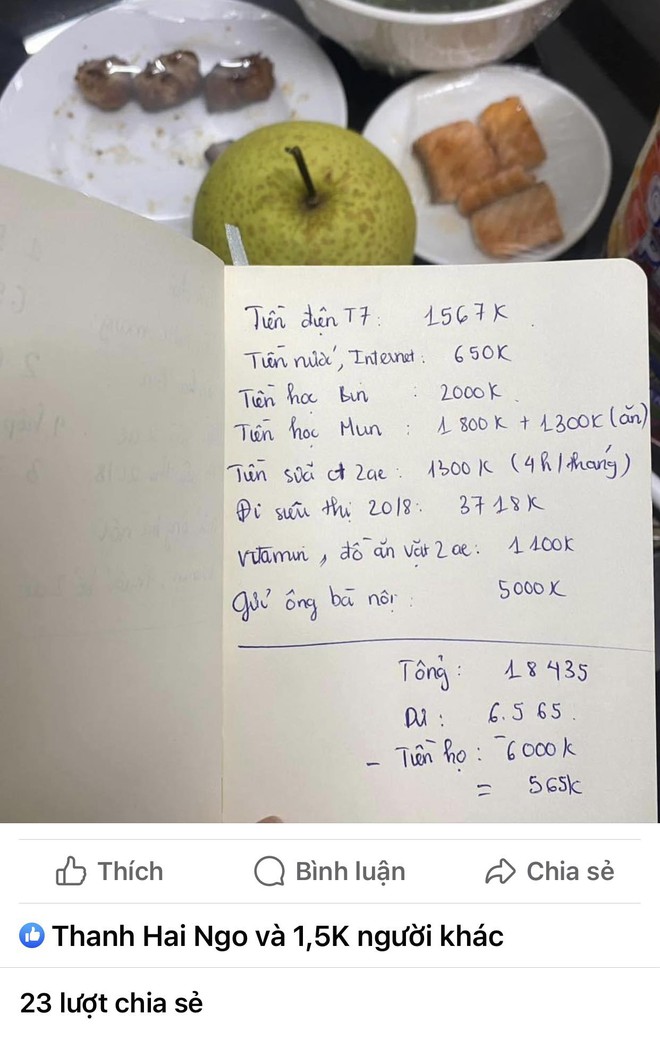 Tiền điện T7: 1567K
Tiền nước, Internet: 650K
Tiền học Bin : 2000K
Tiền học Mun : 1 800K + 1300K (ăn)
Tiền sữa ct 2ae: 1300K (4h/tháng)
Đi siêu thị 20/8: 3718K
Vitamin, đồ ăn vặt 2 ae: 1 100K
Gửi ông bà nội: 5000K
Tổng: 18 435
Dư: 6.565.
- Tiền họ: - 6000k
= 565k
Thích
Bình luận
Chia sẻ
Thanh Hai Ngo và 1,5K người khác
23 lượt chia sẻ